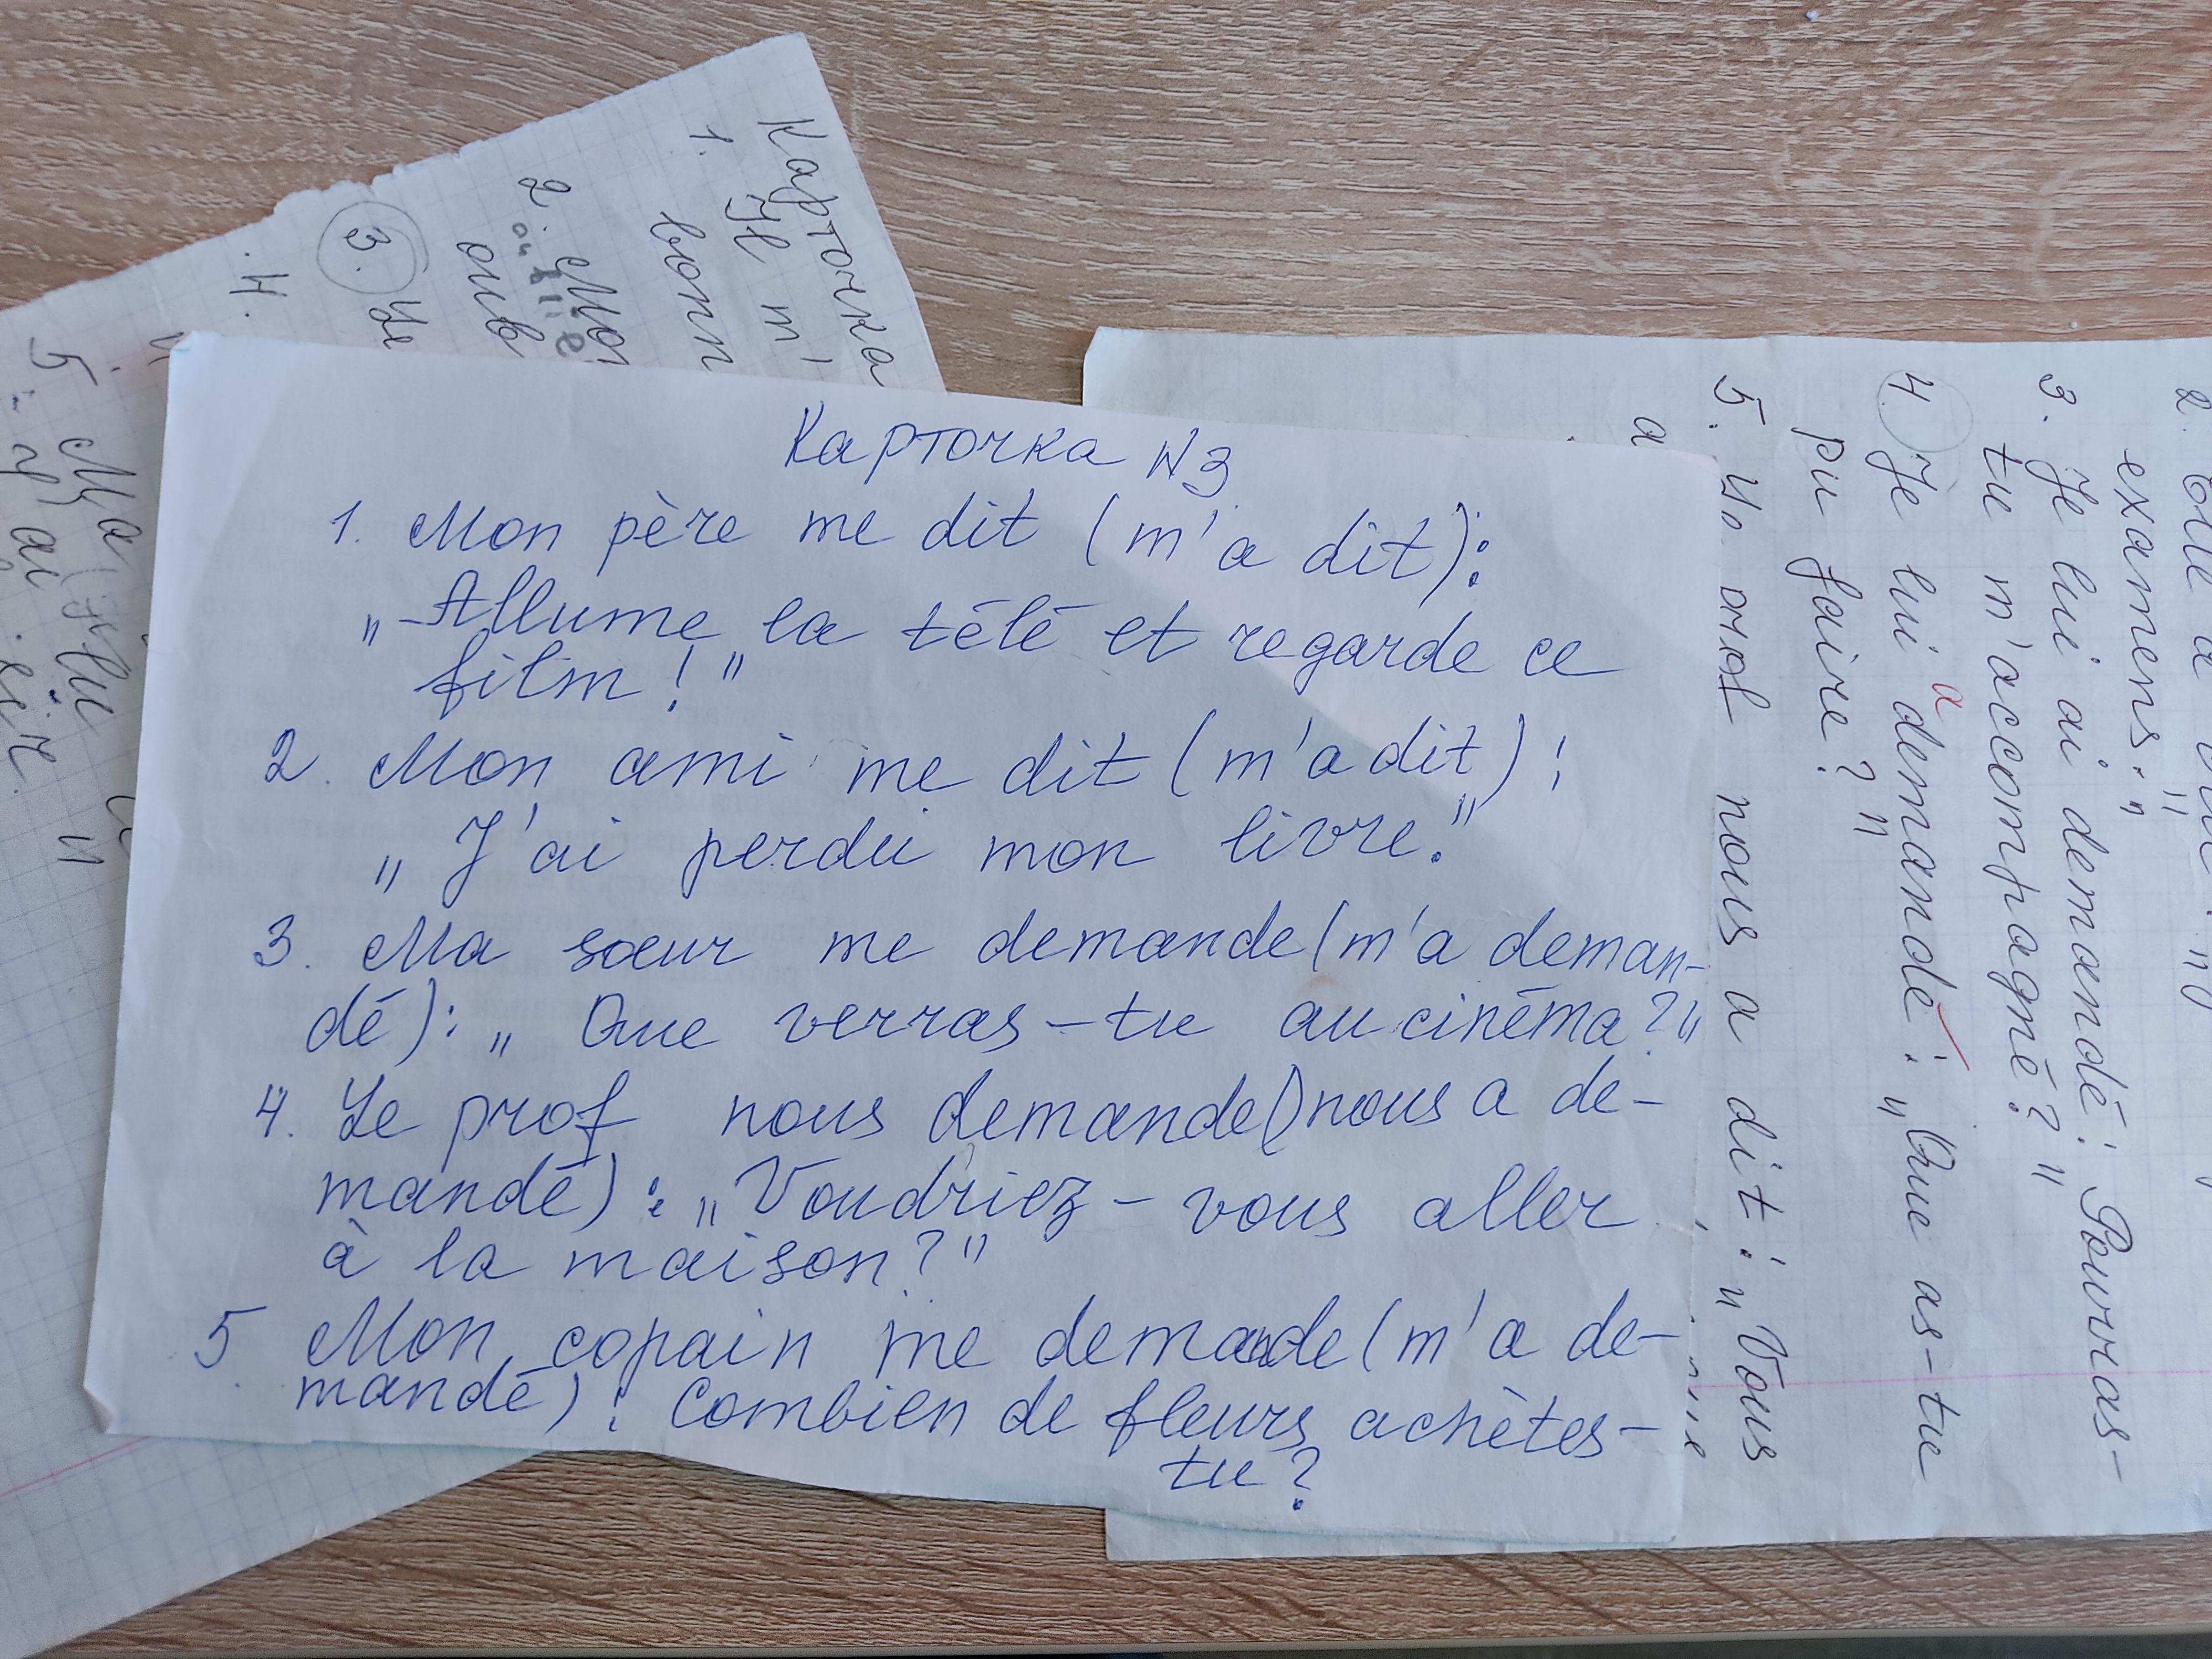 Карточка N3
1. Mon père me dit (m'a dit):
„Allume la télé et regarde ce
film!"
2. Mon ami me dit (m'a dit):
„J'ai perdu mon livre."
3. Ma sœur me demande (m'a deman-
dé): „Que verras-tu au cinéma?"
4. Le prof nous demande (nous a de-
mandé): „Voudriez-vous aller
à la maison?"
5 Mon copain me demande (m'a de-
mandé): Combien de fleurs achètes-
tu?
Карточка
1. Il m'
bonn
2. Mon
oub
3. Le
4.
5. Ma
examens."
3. Je lui ai demandé: Pourras-
tu m'accompagné?"
4 Je lui a demandé: „Que as-tu
pu faire?"
5. nous a dit: „Vous
a